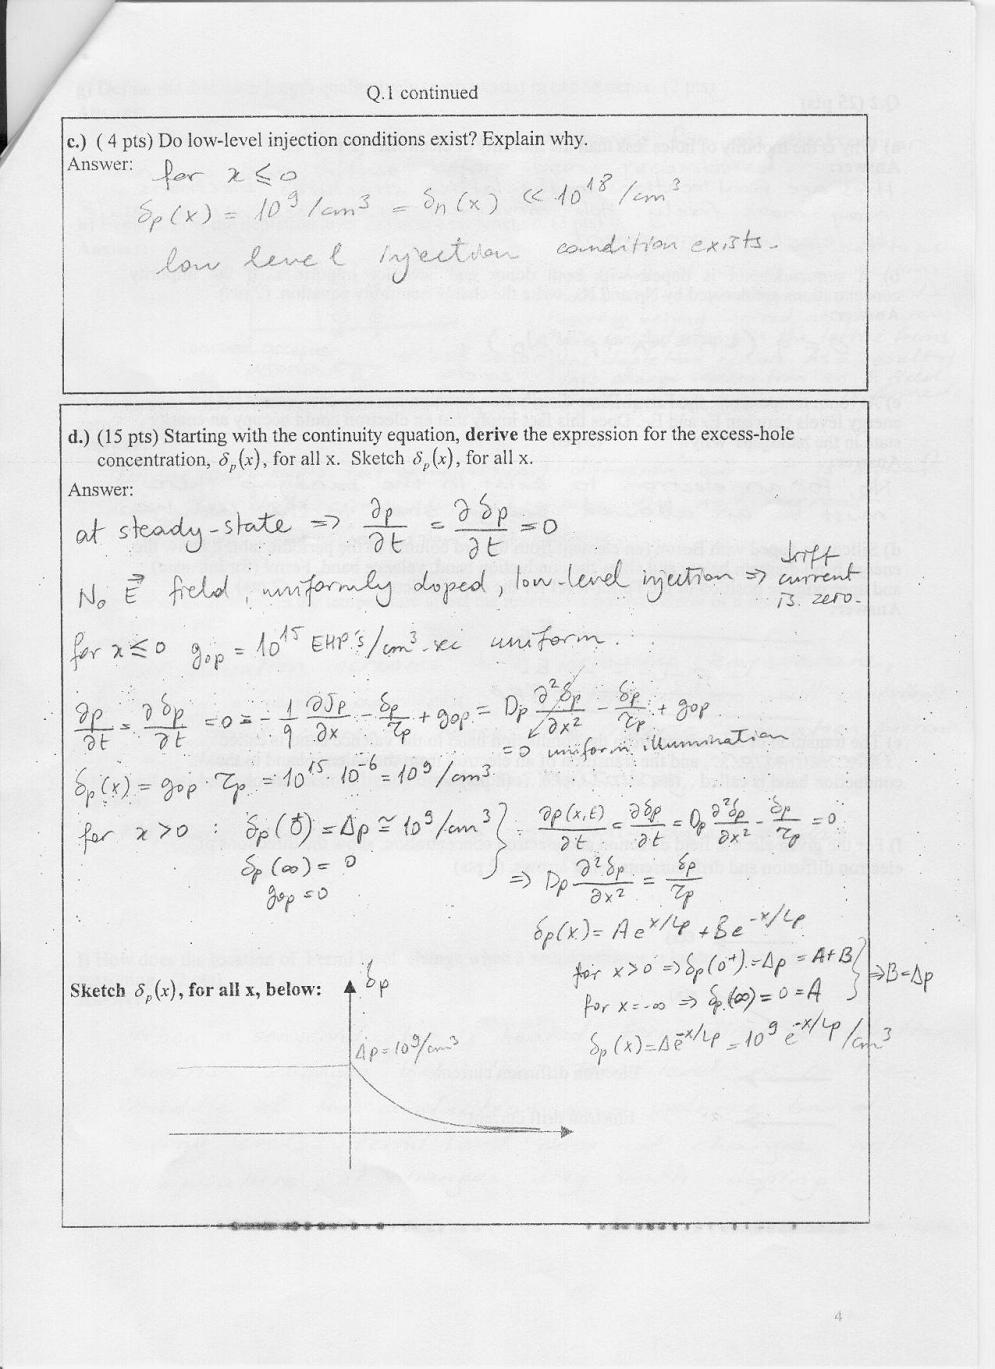 Q.1 continued
c.) ( 4 pts) Do low-level injection conditions exist? Explain why.
Answer:
for x ≤ 0
δp(x) = 10⁹ /cm³ = δn(x) << 10¹⁸ /cm³
low level injection condition exists.
d.) (15 pts) Starting with the continuity equation, derive the expression for the excess-hole
concentration, δp(x), for all x. Sketch δp(x), for all x.
Answer:
at steady-state => ∂p/∂t = ∂δp/∂t = 0
No E⃗ field, uniformly doped, low-level injection => drift current is zero.
for x ≤ 0 gop = 10¹⁵ EHP's/cm³-sec uniform.
∂p/∂t = ∂δp/∂t = 0 = - 1/q ∂Jp/∂x - δp/τp + gop = Dp ∂²δp/∂x² - δp/τp + gop
= 0 uniform illumination
δp(x) = gop · τp = 10¹⁵ · 10⁻⁶ = 10⁹ /cm³
for x > 0 : δp(0⁺) = Δp ≅ 10⁹ /cm³ } = ∂p(x,t)/∂t = ∂δp/∂t = Dp ∂²δp/∂x² - δp/τp = 0
δp(∞) = 0
gop = 0
=> Dp ∂²δp/∂x² = δp/τp
δp(x) = A e^x/Lp + B e^-x/Lp
for x > 0 => δp(0⁺) = Δp = A+B } => B = Δp
for x = -∞ => δp(∞) = 0 = A
δp(x) = Δe^-x/Lp = 10⁹ e^-x/Lp /cm³
Sketch δp(x), for all x, below:
δp
Δp = 10⁹/cm³
4